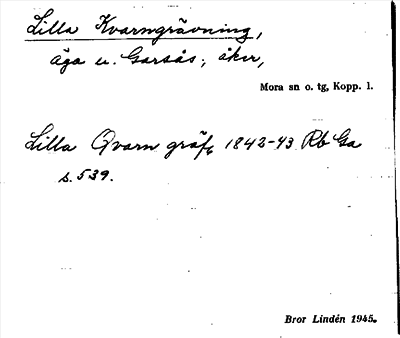 Lilla Kvarngrävning,
äga u. Garsås; åker,
Mora sn o. tg, Kopp. l.
Lilla Qvarn gräfg 1842-43 Rb Ga
s. 539.
Bror Lindén 1945.